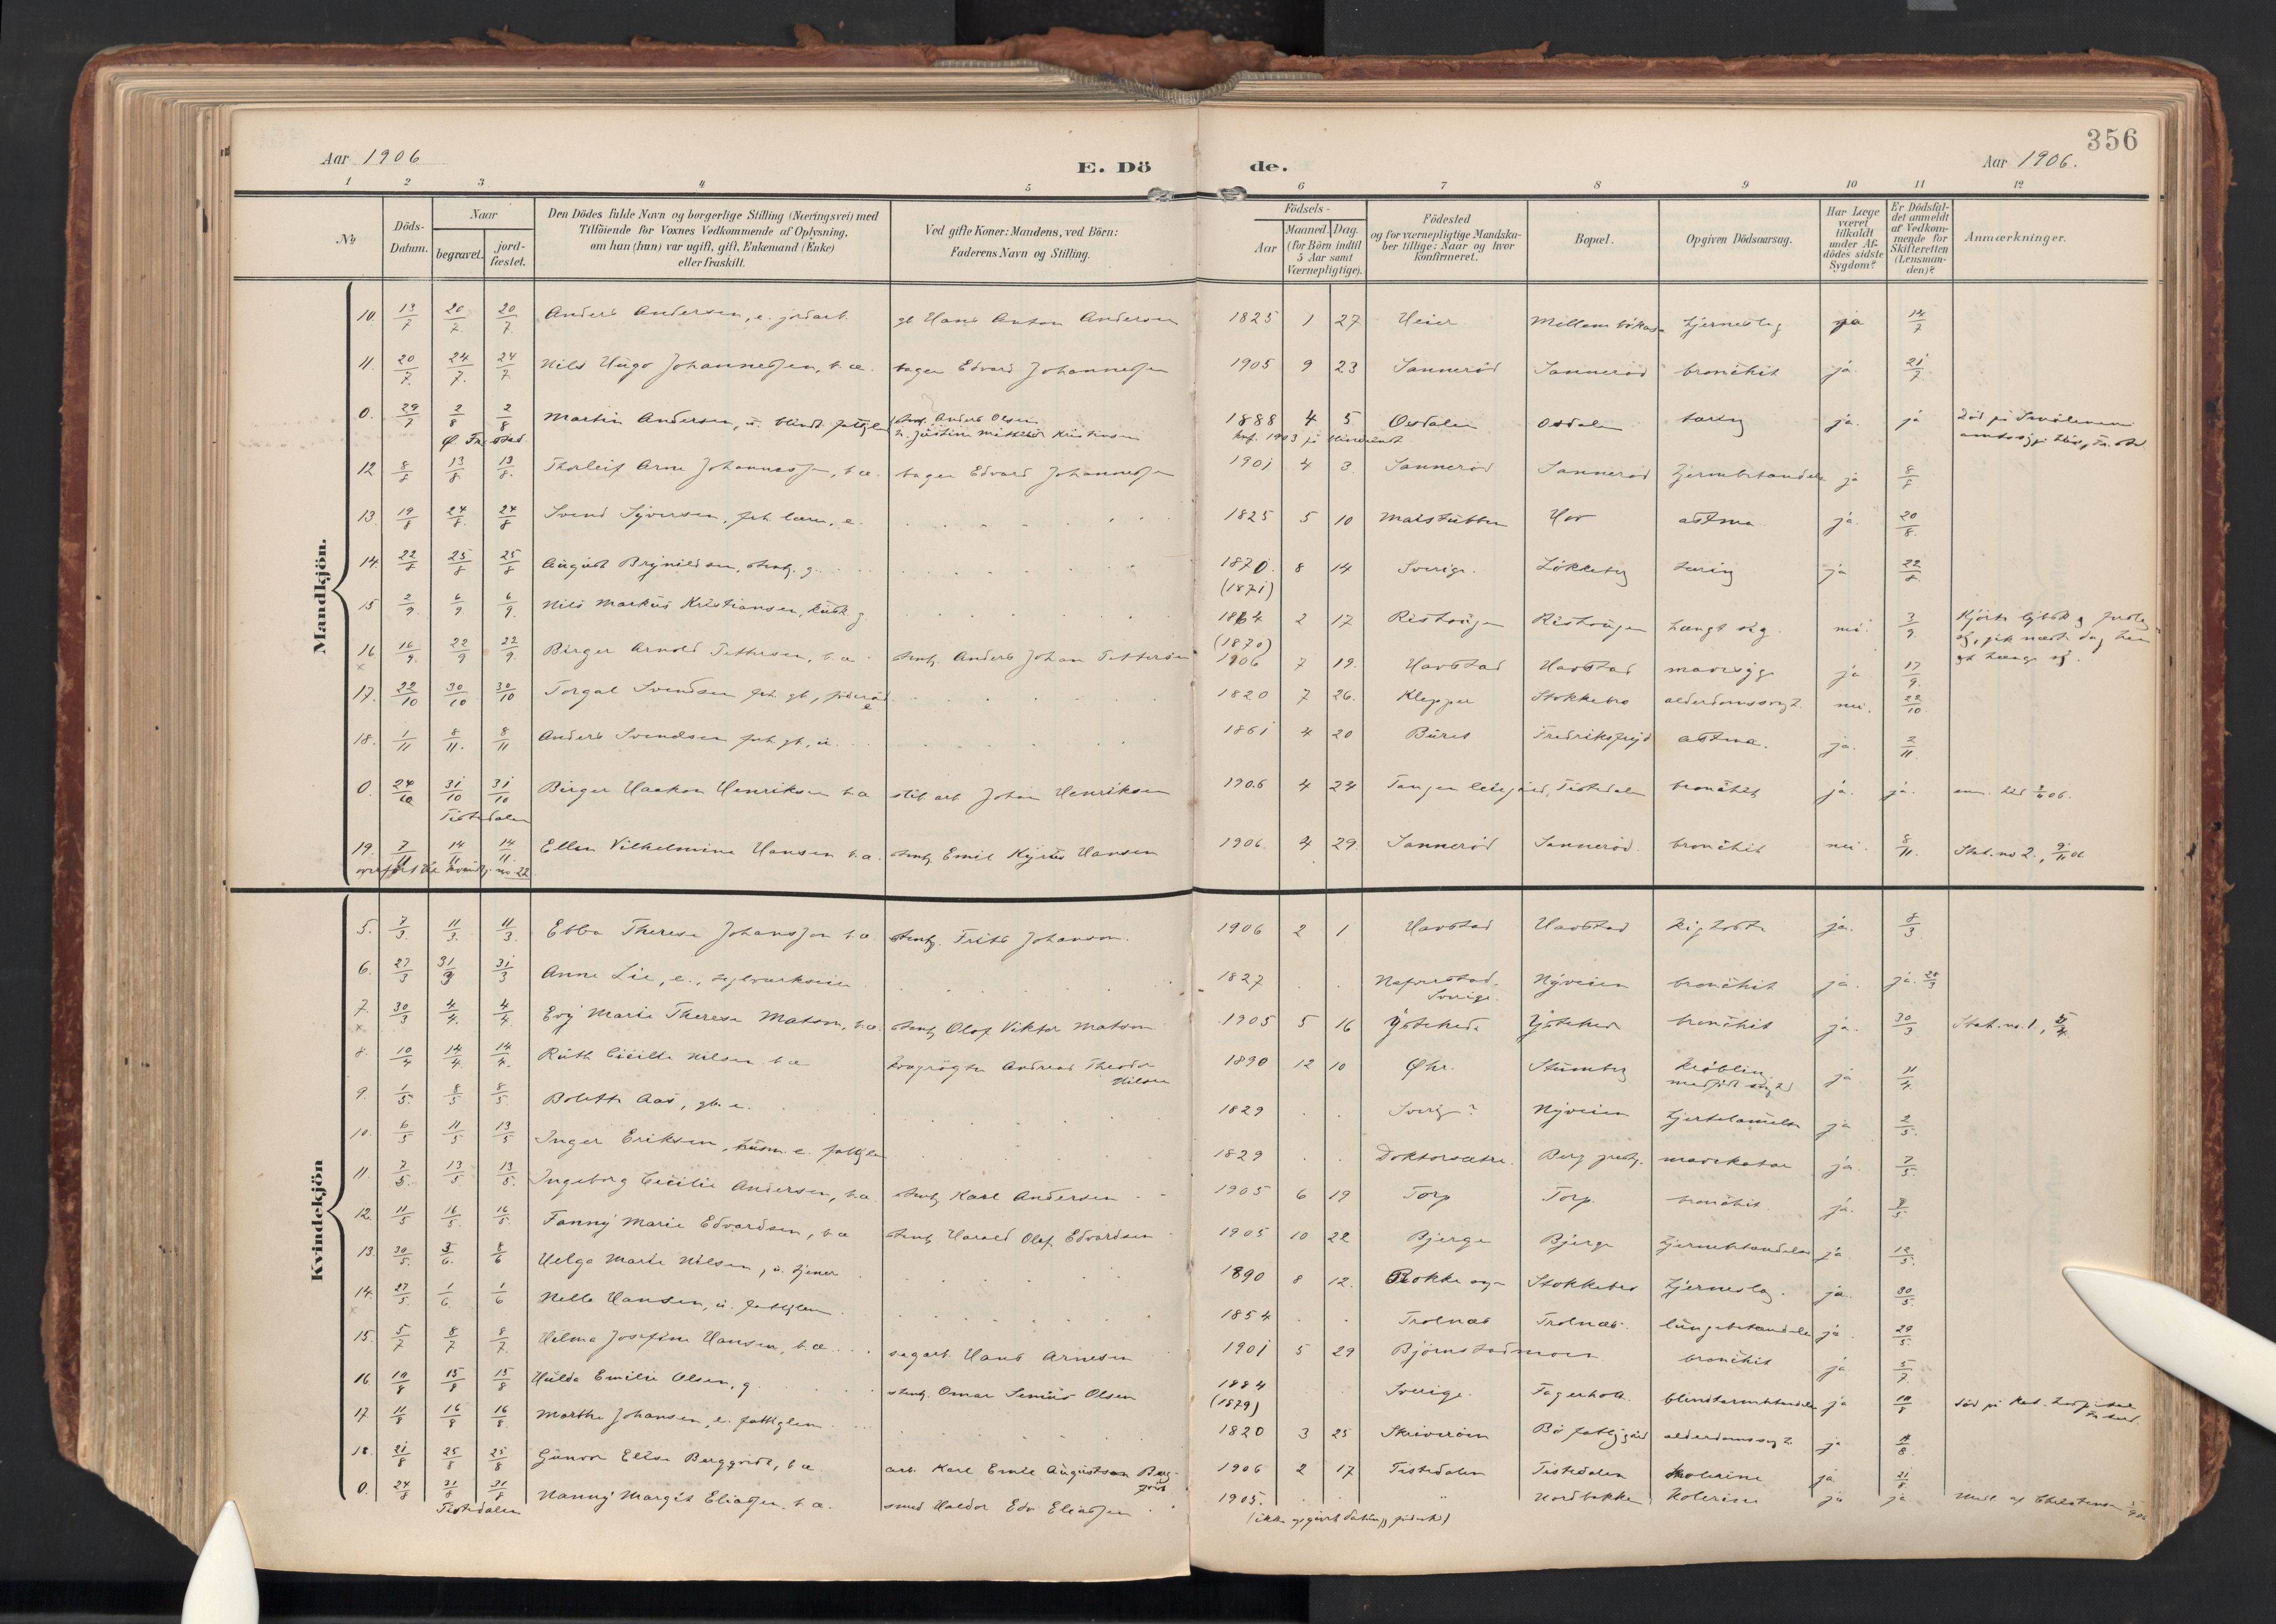 356
Aar 1906
E. Döde.
Aar 1906.
1 2 3 4 5 6 7 8 9 10 11 12
No
Döds-Datum.
Naar
begravet.
jord-fæstet.
Den Dödes fulde Navn og borgerlige Stilling (Næringsvei) med
Tilföiende for Voxnes Vedkommende af Oplysning,
om han (hun) var ugift, gift, Enkemand (Enke)
eller fraskilt.
Ved gifte Koner: Mandens, ved Börn:
Faderens Navn og Stilling.
Födsels-
Aar
Maaned. Dag.
(for Börn indtil
5 Aar samt
Værnepligtige).
Födested
og for værnepligtige Mandska-
ber tillige: Naar og hvor
konfirmeret.
Bopæl.
Opgiven Dödsaarsag.
Har Læge
været
tilkaldt
under Af-
dödes sidste
Sygdom?
Er Dödsfal-
det anmeldt
af Vedkom-
mende for
Skifteretten
(Lensman-
den)?
Anmærkninger.
Mandkjön.
10. 13/7 20/7 20/7 Anders Andersen, e. jordarb. gb. Hans Anton Andersen 1825 1 27 Heier hjerneslag ja 14/7
11. 20/7 24/7 24/7 Nils Hugo Johannessen, b. æ. bager Edvard Johannessen 1905 9 23 Sanneröd Sanneröd bronchit ja 21/7
0. 29/7 2/8 2/8 Martin Andersen, u. blind. Anders Olsen 1888 4 5 Osdalen Osdalen tæring ja. ja
Kristiansen
12 8/8 13/8 13/8 Thorleif Arne Johannessen, b. æ. bager Edvard Johannessen 1901 4 3 Sanneröd Sanneröd hjernebetændelse ja 8/8
13. 19/8 24/8 24/8 Svend Syversen, e. 1825 5 10 Hov astma ja. 20/8
14. 22/8 25/8 25/8 August Brynildsen, stenh. g. 1870 8 14 Sverige. Lökkeberg tæring ja 22/8
(1871)
15 2/9 6/9 6/9 Nils Markus Kristiansen, g. 1864 2 17 Risthaugen Risthaugen hængt sig nei. 3/9
(1870)
16 16/9 22/9 22/9 Birger Arnold Pettersen, b. æ. stenh. Anders Johan Pettersen 1906 7 19. Havstad Havstad mavesyge ja 17/9
17. 22/10 30/10 30/10 Torgal Svendsen 1820 7 26. Klepper Stokkebro alderdomssvagh. nei. 22/10
18. 1/11 8/11. 8/11 Anders Svendsen u. 1861 4 20 Buret Fredriksfryd astma. ja. 2/11
0. 24/10 31/10 31/10 Birger Haakon Henriksen b. æ. Johan Henriksen 1906 4 24 Tistedalen bronchit ja. ja.
Tistedalen
19. 7/11 14/11 14/11. Ellen Vilhelmine Hansen b. æ. stenh. Emil Kyrus Hansen 1906 4 29. Sanneröd Sanneröd. bronchit nei. 8/11.
Kvindekjön
5. 7/3. 11/3. 11/3. Ebba Therese Johansson b. æ. stenh. Frits Johanson. 1906 2 1 Havstad Havstad kighoste ja. 8/3
6. 27/3 31/3 31/3 Anna Lie, e., 1827 Nyveien bronchit ja. ja.
Sverige.
7. 30/3 4/4. 4/4 Evy Marie Therese Matson, b. æ. stenh. Olof Viktor Matson 1905 5 16 bronchit ja. 30/3
8. 10/4 14/4. 14/4. Ruth Cicilie Nilsen b. æ. Andreas Theodor 1890 12 10 Stumberg ja 11/4.
Nilsen
9. 1/5. 8/5 8/5. Bolette Aas, e. 1829 Sverige? Nyveien ja 2/5.
10. 6/5 11/5 13/5 Inger Eriksen, husm. e. fattiglem 1829 Doktorsætre. mavekatar ja. 7/5.
11. 7/5. 13/5 13/5. Ingeborg Cicilie Andersen, b. æ. stenh. Karl Andersen 1905 6 19 Torp Torp. bronchit ja.
12. 11/5 16/5. 16/5. Fanny Marie Edvardsen, b. æ. stenh. Harald Olaf Edvardsen 1905 10 22 Bjerge Bjerge hjernebetændelse ja 12/5.
13. 30/5. 8/6 Helga Marie Nilsen, u. tjener 1890 8 12. Stokkebro hjerneslag. ja. 30/5.
14. 27/5. 1/6. 1/6 Nelle Hansen, u. fattiglem 1854 Trolnæs Trolnæs. lungebetændelse ja. 29/5.
15. 5/7 8/7 8/7. Hilma Josefine Hansen, b. æ. sagarb. Hans Arnesen 1901 5 29 Björnstadmoen bronchit ja 5/7
16 8/8 15/8 15/8 Hulda Emilie Olsen, g. stenh. Omar Olsen 1884 Sverige. Fagerholt blindtarmbetændelse ja
(1879)
17. 11/8 16/8 16/8. Marthe Johansen, e. fattiglem 1820 3 25 Skriveröen alderdomssvagh. ja
18. 21/8 25/8 25/8 Gunvor Elise Berggvist, b. æ. arb. Karl Emil Augustson Berg- 1906 2 17 Tistedalen Tistedalen kolerine ja 21/8
0. 24/8 31/8 31/8 Nanny Margit Eliassen, b. æ. smed Haldor Edv. Eliassen 1905. Nordbakke Kolerine ja ja
Tistedalen